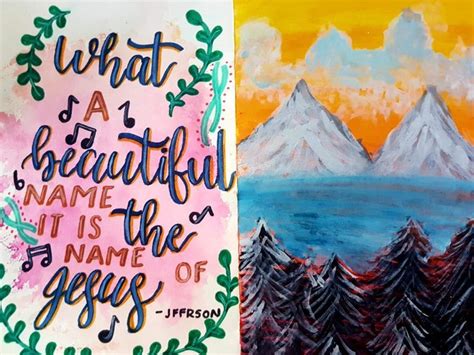 what
A
beautiful
NAME
IT IS the
NAME OF
Jesus
-JFFRSON